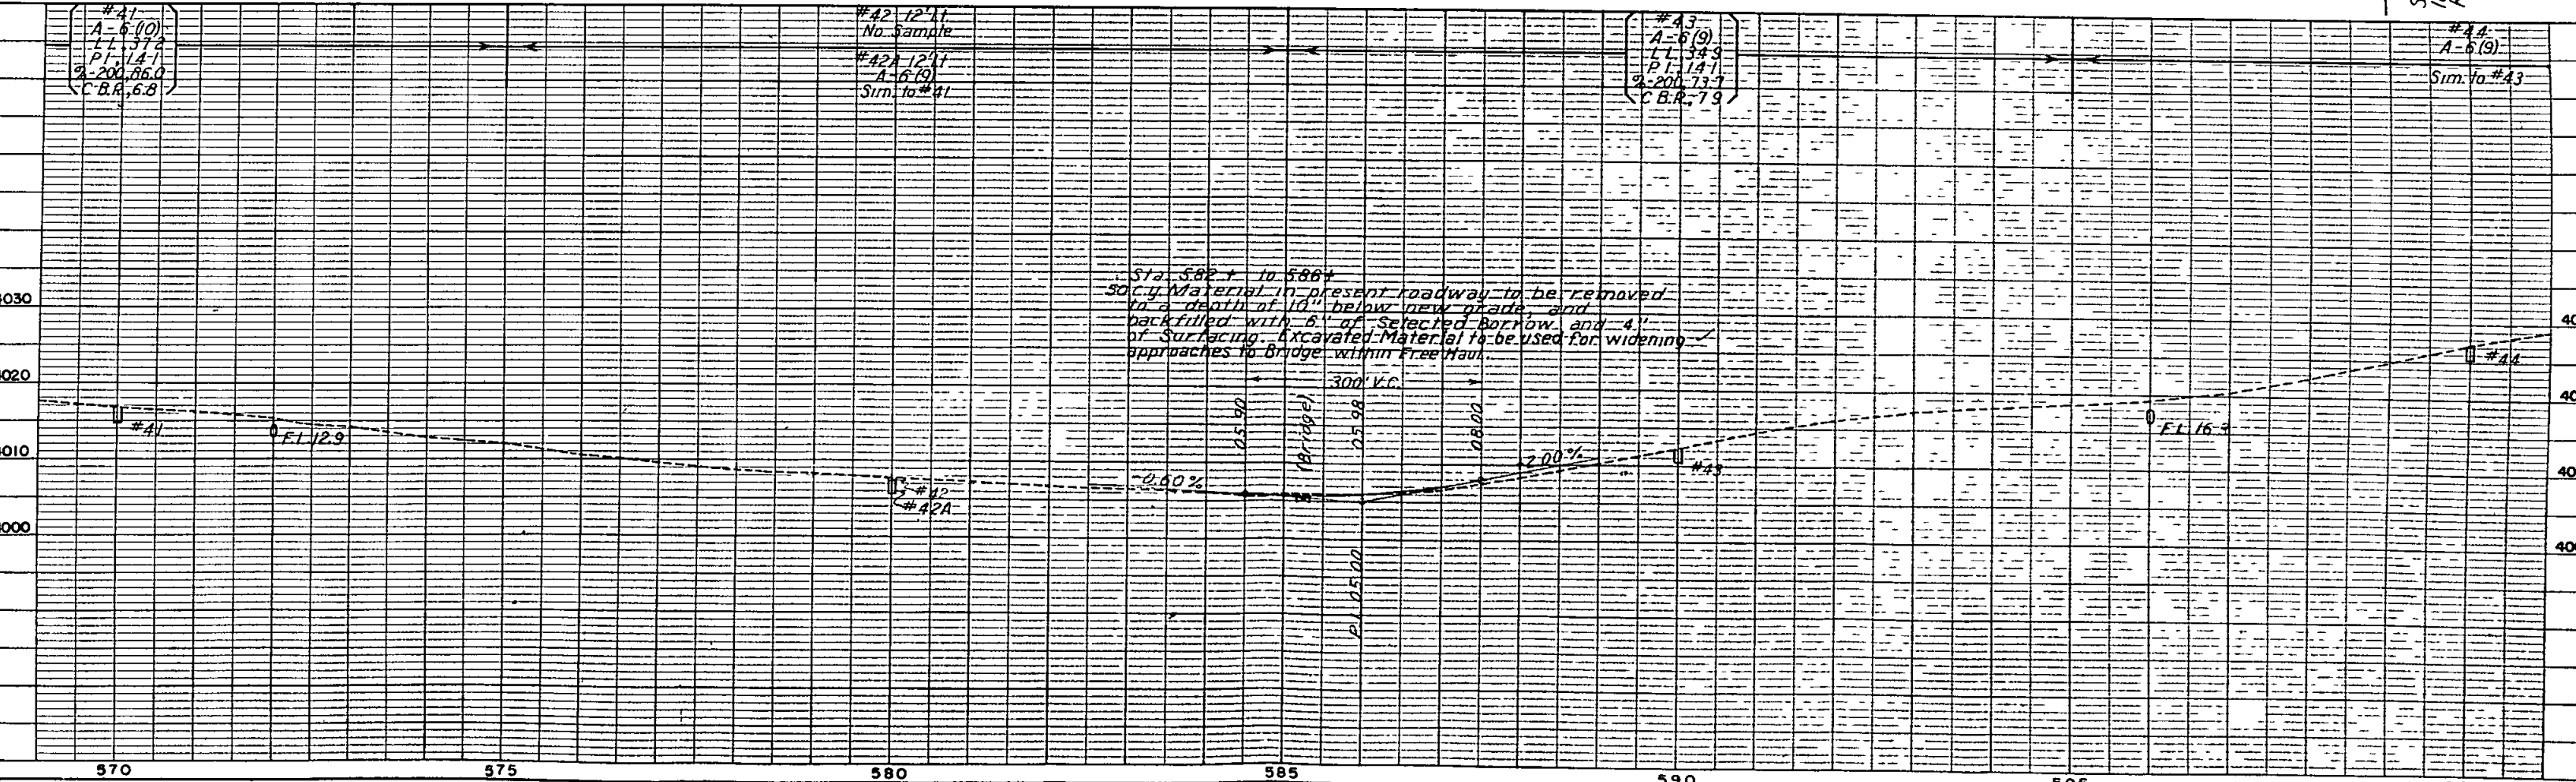 #41
A-6(10)
L.L.,37.2
P.I.,14.1
%-200,86.0
C.B.R.,6.8
#42 12' Lt.
No Sample
#42A 12' Lt.
A-6(9)
Sim. to #41
#43
A-6(9)
L.L.,34.9
P.I.,14.1
%-200,73.7
C.B.R.,7.9
#44
A-6(9)
Sim. to #43
Sta. 582+ to 586+
50 c.y. Material in present roadway to be removed
to a depth of 10" below new grade, and
backfilled with 6" of Selected Borrow and 4"
of Surfacing. Excavated Material to be used for widening
approaches to Bridge within Free Haul.
300' V.C.
05.90
(Bridge)
05.98
08.00
P.I. 05.00
-0.60%
2.00%
#41
F.L. 12.9
#42
#42A
#43
#44
4030
4020
4010
4000
570
575
580
585
590
595